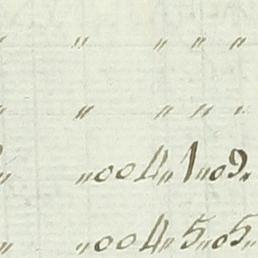 " " " " "
" " " " "
" "004"1"09"
" "004"5"05"